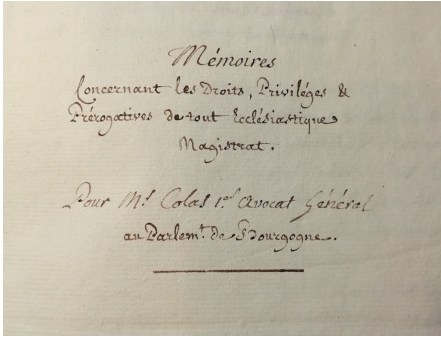 Mémoires
Concernant les Droits, Priviléges &
Prérogatives de tout Ecclésiastique
Magistrat.
Pour Mr Colas 1er Avocat Général
au Parlemt. de Bourgogne.